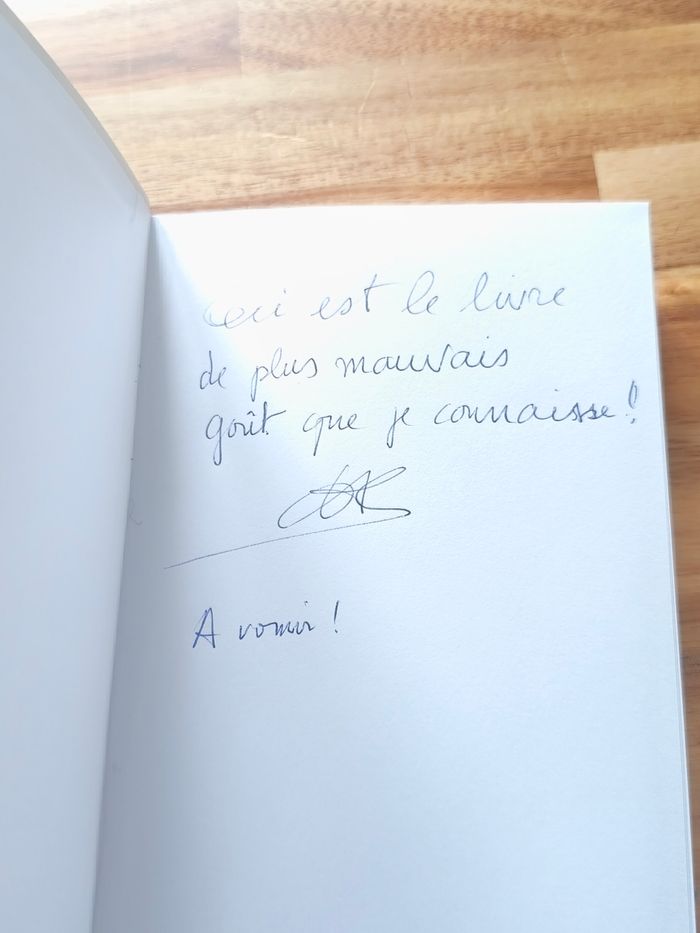 Ceci est le livre
de plus mauvais
goût que je connaisse !
A vomir !